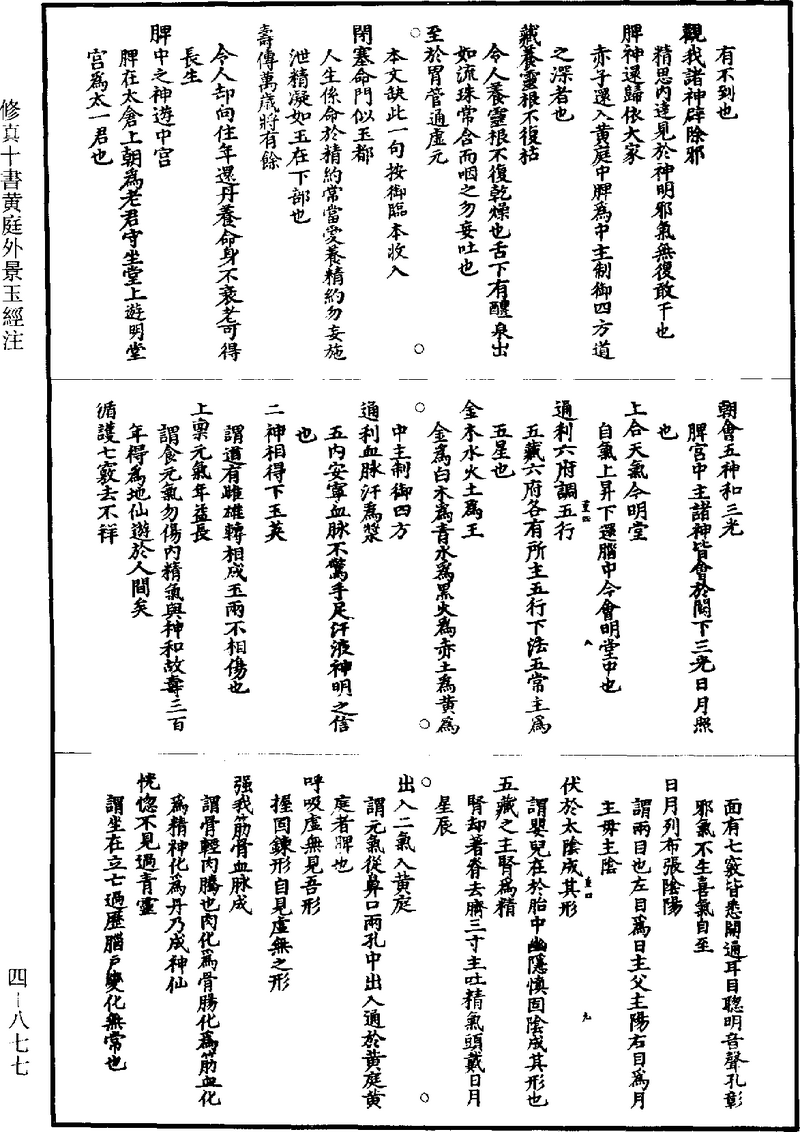 有不到也
觀我諸神辟除邪
精思內達見於神明邪氣無復敢干也
脾神還歸依大家
赤子還入黃庭中脾為中主制御四方道
之深者也
藏養靈根不復枯
令人養靈根不復乾燥也舌下有醴泉出
如流珠常含而咽之勿妄吐也
至於胃管通虛元
本文缺此一句按御臨本收入
閉塞命門似玉都
人生係命於精約常當愛養精約勿妄施
泄精凝如玉在下部也
壽傳萬歲將有餘
令人却向住年還丹養命身不衰老可得
長生
脾中之神遊中宮
脾在太倉上朝為老君守坐堂上遊明堂
宮為太一君也
朝會五神和三光
脾宮中主諸神皆會於闕下三光日月照
也
上合天氣令明堂
自氣上昇下還腦中令會明堂中也
通利六府調五行
五藏六府各有所主五行下法五常主為
五星也
金木水火土為王
金為白木為青水為黑火為赤土為黃為
中主制御四方
通利血脉汗為漿
五內安寧血脉不驚手足汗液神明之信
也
二神相得下玉英
謂道有雌雄轉相成玉兩不相傷也
上稟元氣年益長
謂食元氣勿傷內精氣與神和故壽三百
年得為地仙遊於人間矣
循護七竅去不祥
面有七竅皆悉開通耳目聰明音聲孔彰
邪氣不生喜氣自至
日月列布張陰陽
謂兩目也左目為日主父主陽右目為月
主母主陰
伏於太陰成其形
謂嬰兒在於胎中幽隱慎固陰成其形也
五藏之主腎為精
腎却著脊去臍三寸主吐精氣頭戴日月
星辰
出入二氣入黃庭
謂元氣從鼻口兩孔中出入通於黃庭黃
庭者脾也
呼吸虛無見吾形
握固鍊形自見虛無之形
强我筋骨血脉成
謂骨輕肉騰也肉化為骨腸化為筋血化
為精神化為丹乃成神仙
恍惚不見過青靈
謂坐在立亡過歷腦戶變化無常也
修真十書黄庭外景玉經注
四—八七七